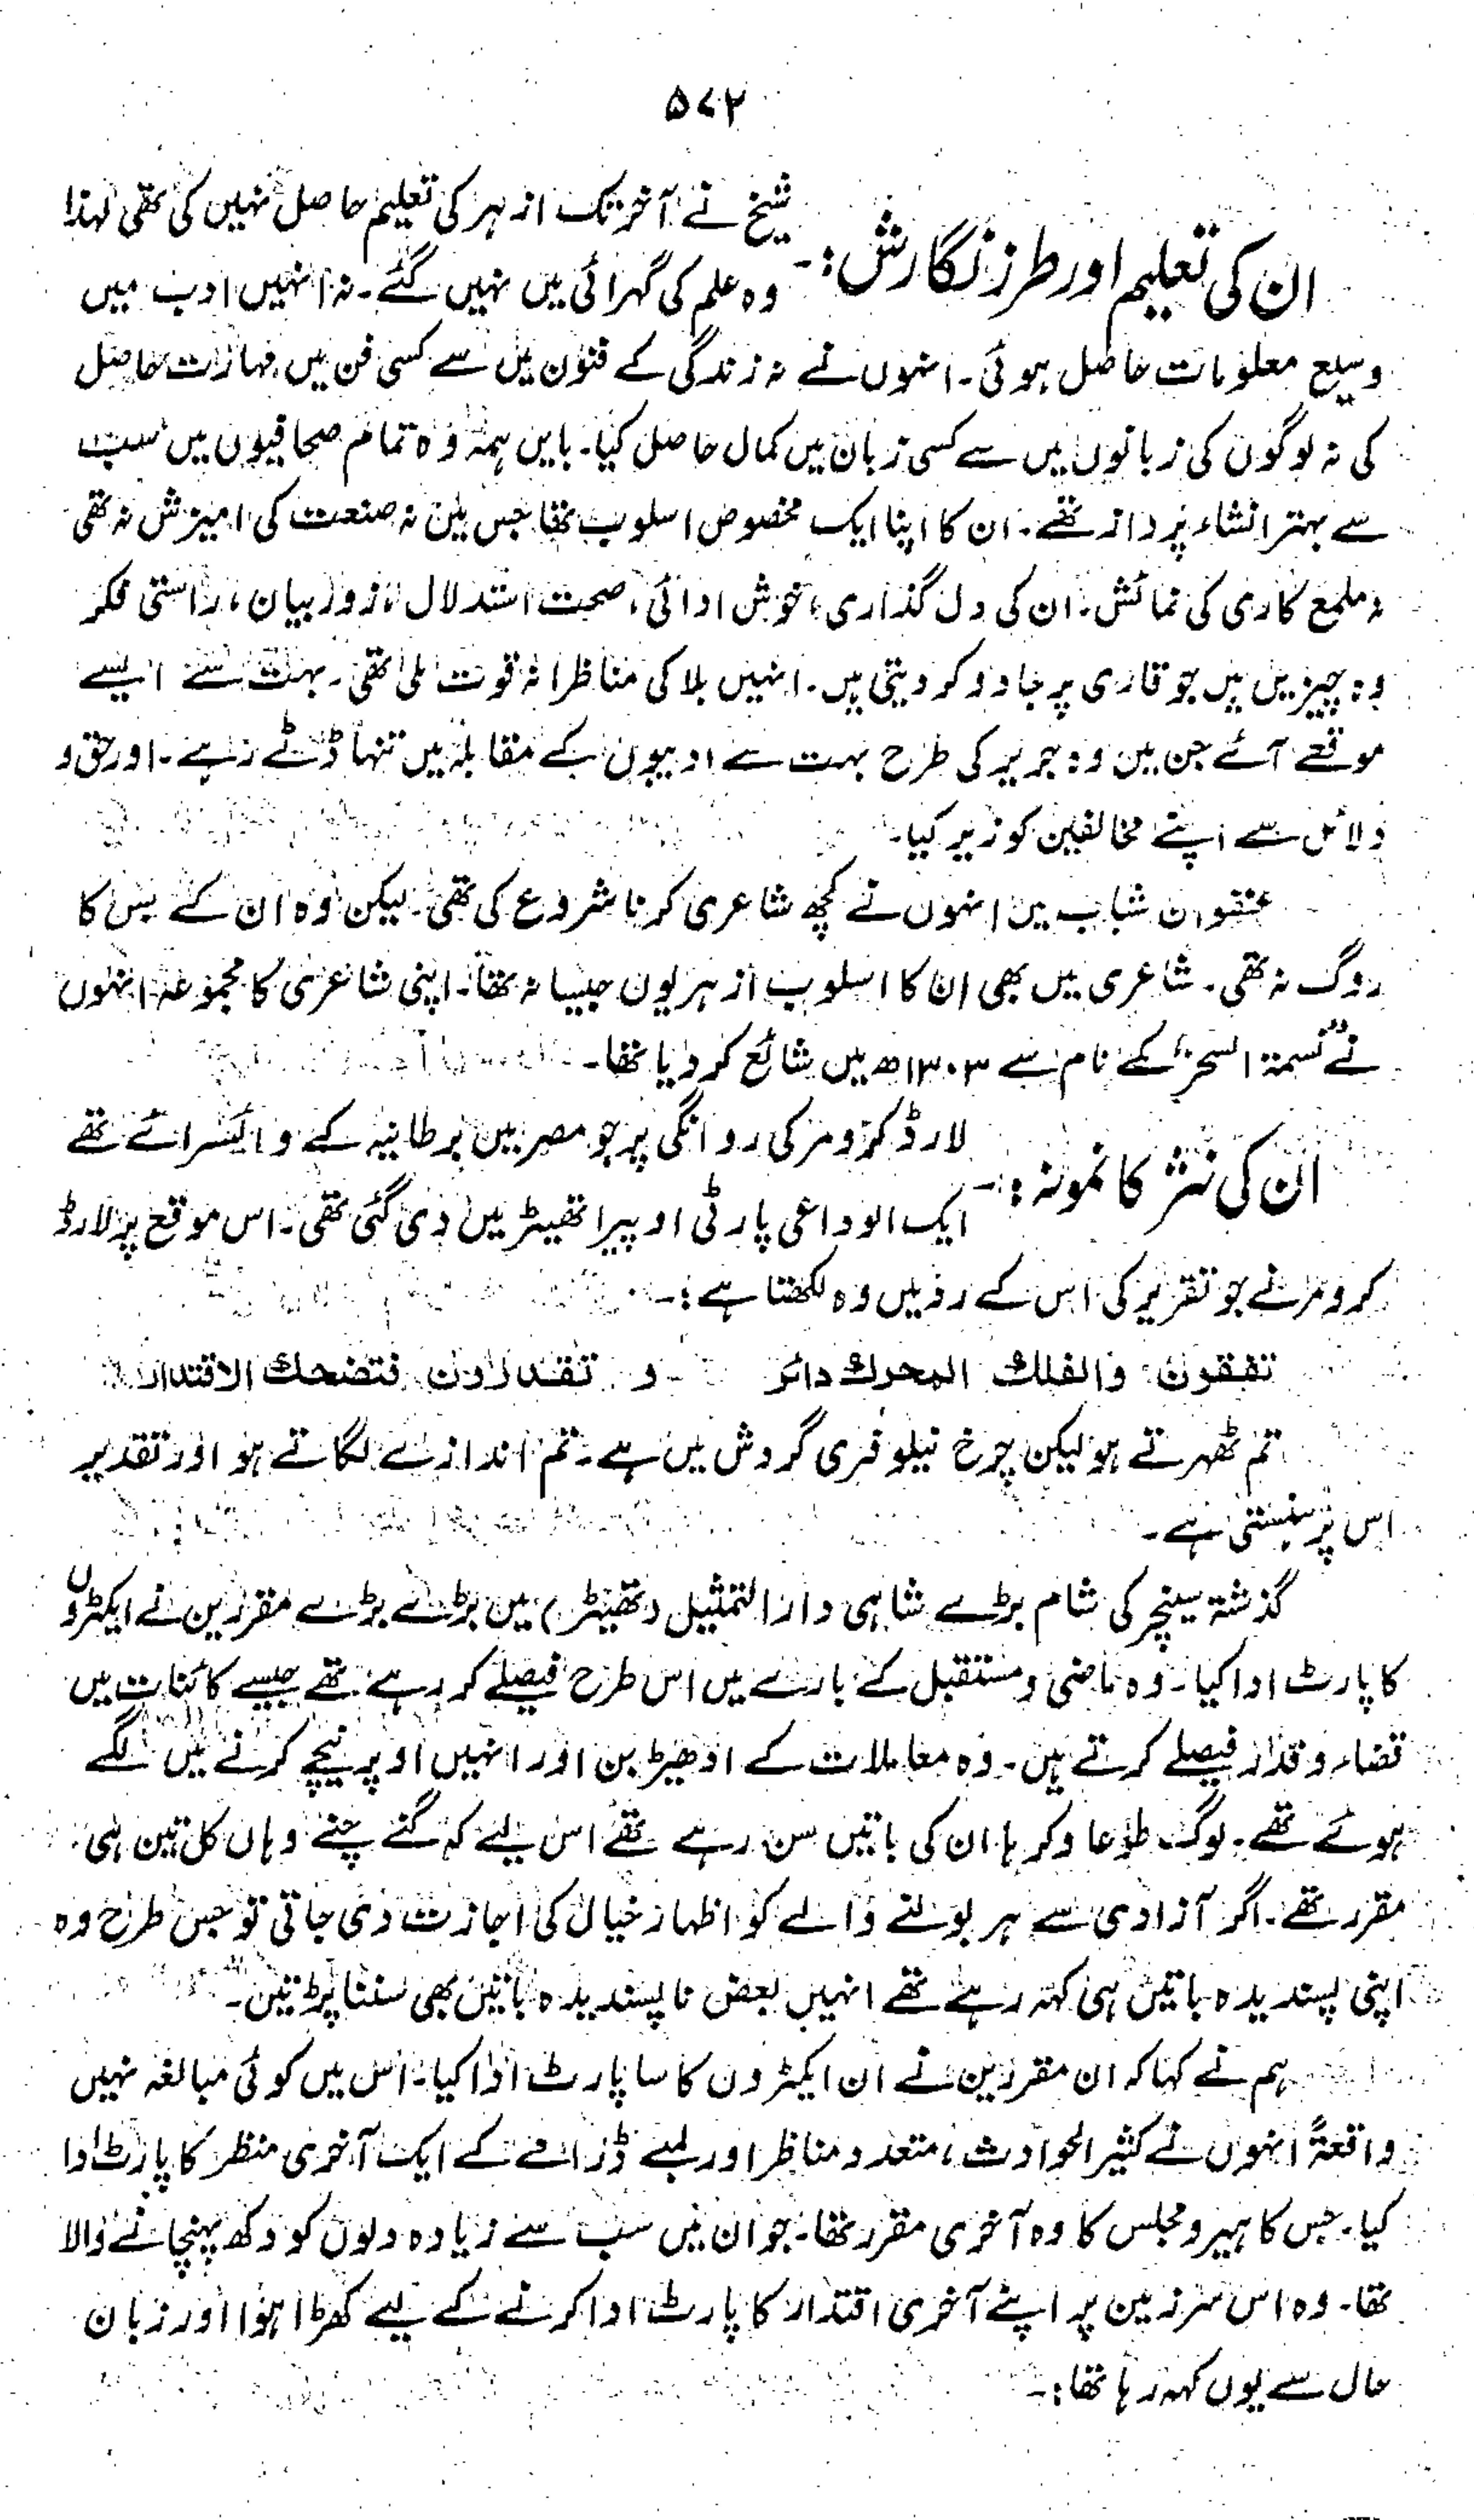 ۵۷۲
ان کی تعلیم اور طرز نگارش :-
شیخ نے آخر تک ازہر کی تعلیم حاصل نہیں کی تھی لہذا
وہ علم کی گہرائی میں نہیں گئے۔ نہ انہیں ادب میں
وسیع معلومات حاصل ہوئی۔ انہوں نے نہ زندگی کے فنون میں سے کسی فن میں مہارت حاصل
کی نہ لوگوں کی زبانوں میں سے کسی زبان میں کمال حاصل کیا۔ باین ہمہ وہ تمام صحافیوں میں سب
سے بہتر انشاء پرداز تھے۔ ان کا اپنا ایک مخصوص اسلوب تھا جس میں نہ صنعت کی امیزش نہ تھی
نہ ملمع کاری کی نمائش۔ ان کی دل گذاری، خوش ادائی، صحت استدلال، زور بیان، راستی فکر
وہ چیزیں ہیں جو قاری پر جادو کر دیتی ہیں۔ انہیں بلا کی مناظرانہ قوت ملی تھی۔ بہت سے ایسے
موقعے آئے جن میں وہ جریر کی طرح بہت سے ادیبوں کے مقابلہ میں تنہا ڈٹے رہے۔ اور حق و
دلائل سے اپنے مخالفین کو زیر کیا۔
عنفوان شباب میں انہوں نے کچھ شاعری کرنا شروع کی تھی۔ لیکن وہ ان کے بس کا
روگ نہ تھی۔ شاعری میں بھی ان کا اسلوب ازہریوں جیسا نہ تھا۔ اپنی شاعری کا مجموعہ انہوں
نے "نسمۃ السحر" کے نام سے ۱۳۰۳ھ میں شائع کر دیا تھا۔
ان کی نثر کا نمونہ :-
لارڈ کرومر کی روانگی پر جو مصر میں برطانیہ کے وائسرائے تھے
ایک الوداعی پارٹی اوپیرا تھیٹر میں دی گئی تھی۔ اس موقع پر لارڈ
کرومر نے جو تقریر کی اس کے رد میں وہ لکھتا ہے :-
تفقون والفلك المحرك دائر و تقدرون فتضحك الاقتدار
تم ٹھہرتے ہو لیکن چرخ نیلوفری گردش میں ہے۔ تم اندازے لگاتے ہو اور تقدیر
اس پر ہنستی ہے۔
گذشتہ سینچر کی شام بڑے شاہی دار التمثیل (تھیٹر) میں بڑے بڑے مقررین نے ایکٹروں
کا پارٹ ادا کیا۔ وہ ماضی و مستقبل کے بارے میں اس طرح فیصلے کر رہے تھے جیسے کائنات میں
قضاء و قدر فیصلے کرتے ہیں۔ وہ معاملات کے ادھیڑ بن اور انہیں اوپر نیچے کرنے میں لگے
ہوئے تھے۔ لوگ طوعا و کرہا ان کی باتیں سن رہے تھے اس لیے کہ گنے چنے وہاں کل تین ہی
مقرر تھے۔ اگر آزادی سے ہر بولنے والے کو اظہار خیال کی اجازت دی جاتی تو جس طرح وہ
اپنی پسندیدہ باتیں ہی کہہ رہے تھے انہیں بعض ناپسندیدہ باتیں بھی سننا پڑتیں۔
ہم نے کہا کہ ان مقررین نے ان ایکٹروں کا سا پارٹ ادا کیا۔ اس میں کوئی مبالغہ نہیں
واقعۃً انہوں نے کثیر الحوادث، متعدد مناظر اور لمبے ڈرامے کے ایک آخری منظر کا پارٹ ادا
کیا۔ جس کا ہیرو مجلس کا وہ آخری مقرر تھا۔ جو ان میں سب سے زیادہ دلوں کو دکھ پہنچانے والا
تھا۔ وہ اس سرزمین پر اپنے آخری اقتدار کا پارٹ ادا کرنے کے لیے کھڑا ہوا اور زبان
حال سے یوں کہہ رہا تھا :-